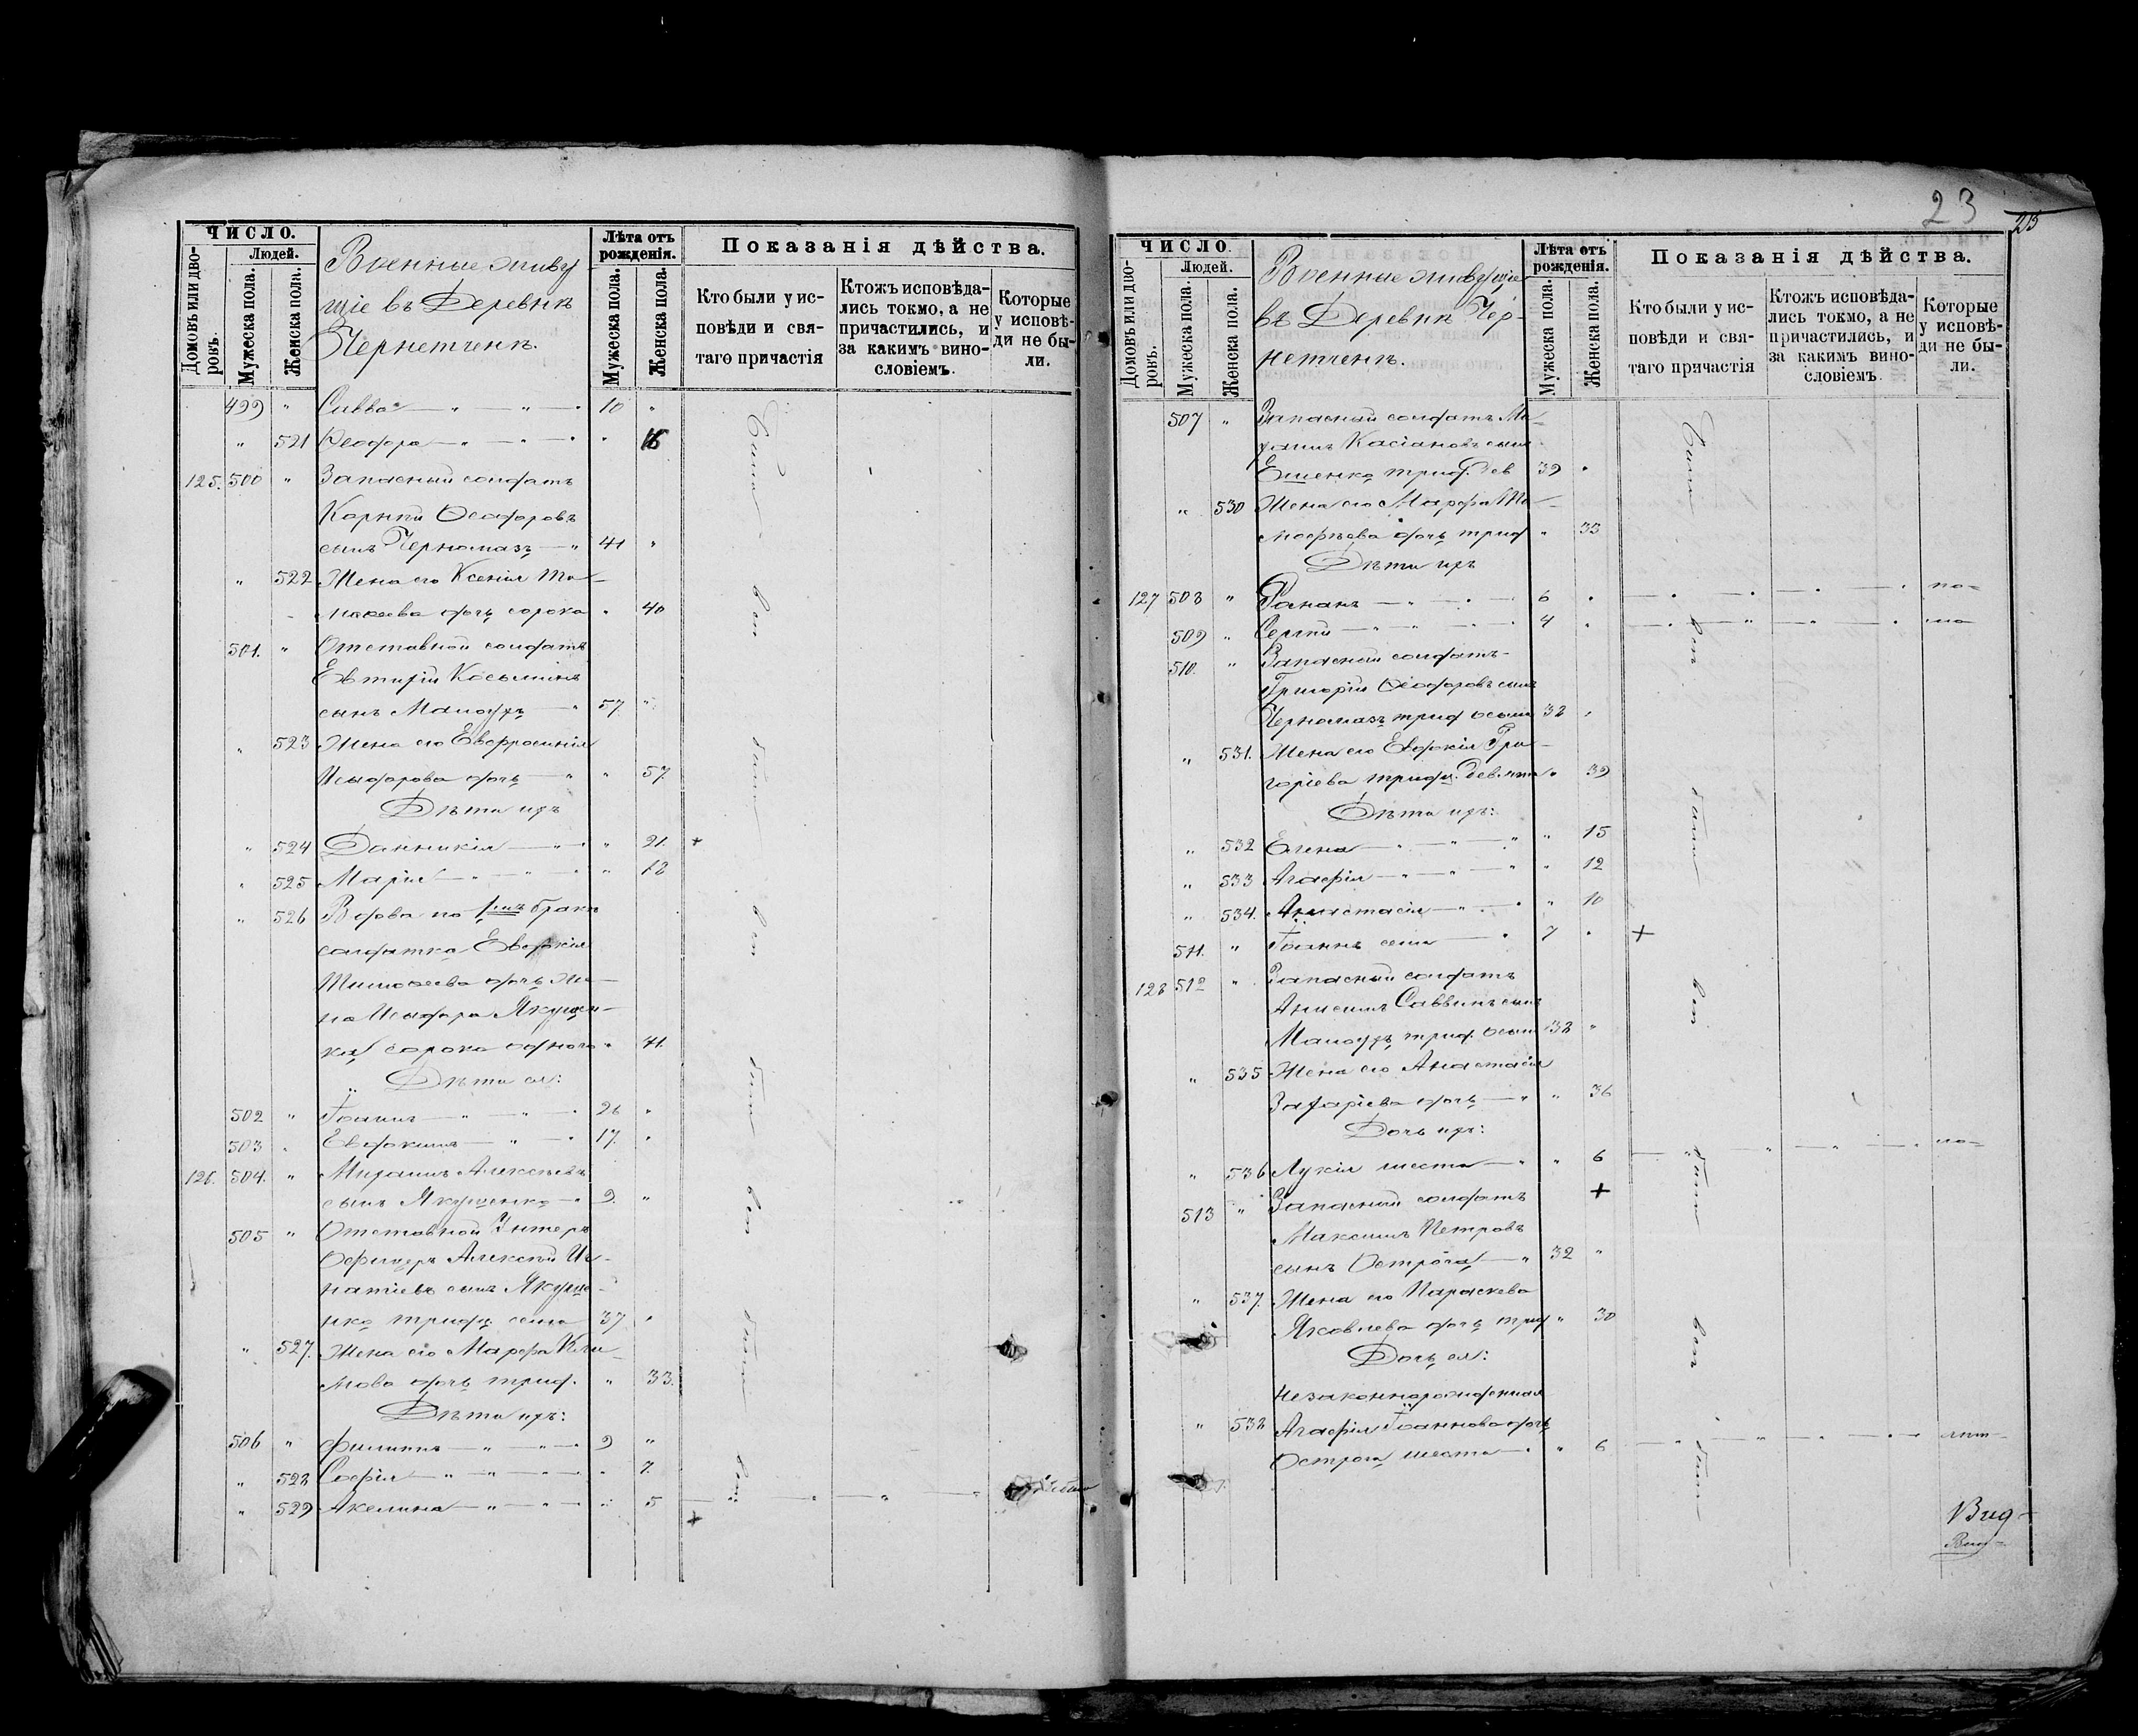 23
23
ЧИСЛО.
Людей.
Домовъ или дворовъ.
Мужеска пола.
Женска пола.
Военные живу
щіе въ Деревнѣ
Чернетченѣ.
Лѣта отъ рожденія.
Мужеска пола.
Женска пола.
Показанія дѣйства.
Кто были у исповѣди и святаго причастія
Ктожъ исповѣдались токмо, а не причастились, и за какимъ винословіемъ.
Которые у исповѣди не были.
499 " Савва — " — " 10 "
" 521 Ѳеодора — " — " "
125. 500 " Запасный солдатъ
Корнѣй Ѳеодоровъ
сынъ Черномазъ — " 41 "
" 522 Жена его Ксенія
дочь сорока " 40
501. " Отставной солдатъ
Евтихій Косьминъ
сынъ — " 57 "
" 523 Жена его Евфросинія
Исидорова дочь — " " 57
Дѣти ихъ
" 524 — " " 21. +
" 525 Марія — " — " " 18
" 526 Вдова по бракѣ
солдатка Евдокія
Тимоѳеева дочь
на Исидора
ка сорока одного " 41.
Дѣти ея:
502 " Іоаннъ — " — " 26 "
503 " Евдокимъ — " — " 17. "
126. 504. " Михаилъ Алексѣевъ
сынъ Якущенко — " 9. "
505 " Отставной Унтеръ
Офицеръ Алексѣй Иг-
натіевъ сынъ Якуще-
нко тридц. семи 37 "
" 527. Жена его Марѳа Кли-
мова дочь трид. " 33.
Дѣти ихъ:
506 " Филиппъ — " — " 9 "
" 528 Софія — " — " " 7.
" 529 Акелина — " — " " 5
+
Были всѣ были всѣ были всѣ были всѣ
ЧИСЛО.
Людей.
Домовъ или дворовъ.
Мужеска пола.
Женска пола.
Военные живущіе
въ Деревнѣ Чер-
нетченѣ.
Лѣта отъ рожденія.
Мужеска пола.
Женска пола.
Показанія дѣйства.
Кто были у исповѣди и святаго причастія
Ктожъ исповѣдались токмо, а не причастились, и за какимъ винословіемъ.
Которые у исповѣди не были.
507 " Запасный солдатъ Ми-
хаилъ Касіановъ сынъ
Ешенко трид. дев 39 "
" 530 Жена его Марѳа Ти-
моѳеева дочь трид " 33
Дѣти ихъ
127 508 " — " — " 6 " по-
509 " Сергій — " — " 4 "
510. " Запасный солдатъ
Григорій Ѳеодоровъ сынъ
Черномазъ трид осьми 38 "
" 531. Жена его Евдокія Гри-
горіева тридц. девяти " 39
Дѣти ихъ:
" 532 Елена — " — " " 15
" 533 Агафія — " — " " 12
" 534. Анастасія — " " 10
511. " Іоаннъ семи — " 7 " +
128 512 " Запасный солдатъ
Анисимъ Саввинъ сынъ
трид. осьми 38 "
" 535 Жена его Анастасія
Захаріева дочь — " " 36
Дочь ихъ:
" 536 Лукія шести — " " 6
+
513 " Запасный солдатъ
Максимъ Петровъ
сынъ Острога — " 32 "
" 537. Жена его Параскева
Яковлева дочь трид " 30
Дочь ея:
незаконнорожденная
" 538 Агафія Іоаннова дочь
Острога шести — " " 6
Были всѣ были всѣ были всѣ были